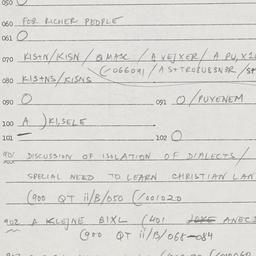 050 O
060 FOR RICHER PEOPLE
061 O
070 KIS+N/KISN / QMASC / A VEJXER / A PU,
(/066091 / AS+TROZUBSNØR /
080 KIS+NS/KISNS
090 O 091 O/PUYENEM
100 A )KI,SELE
101 — 102 O
901 DISCUSSION OF ISOLATION OF DIALECTS/
SPECIAL NEED TO LEARN CHRISTIAN LAN
(900 QT ii/B/050 (/001020
902 A KLEJNE BIXL (401 JOKE ANEC
(900 QT ii/B/065-084